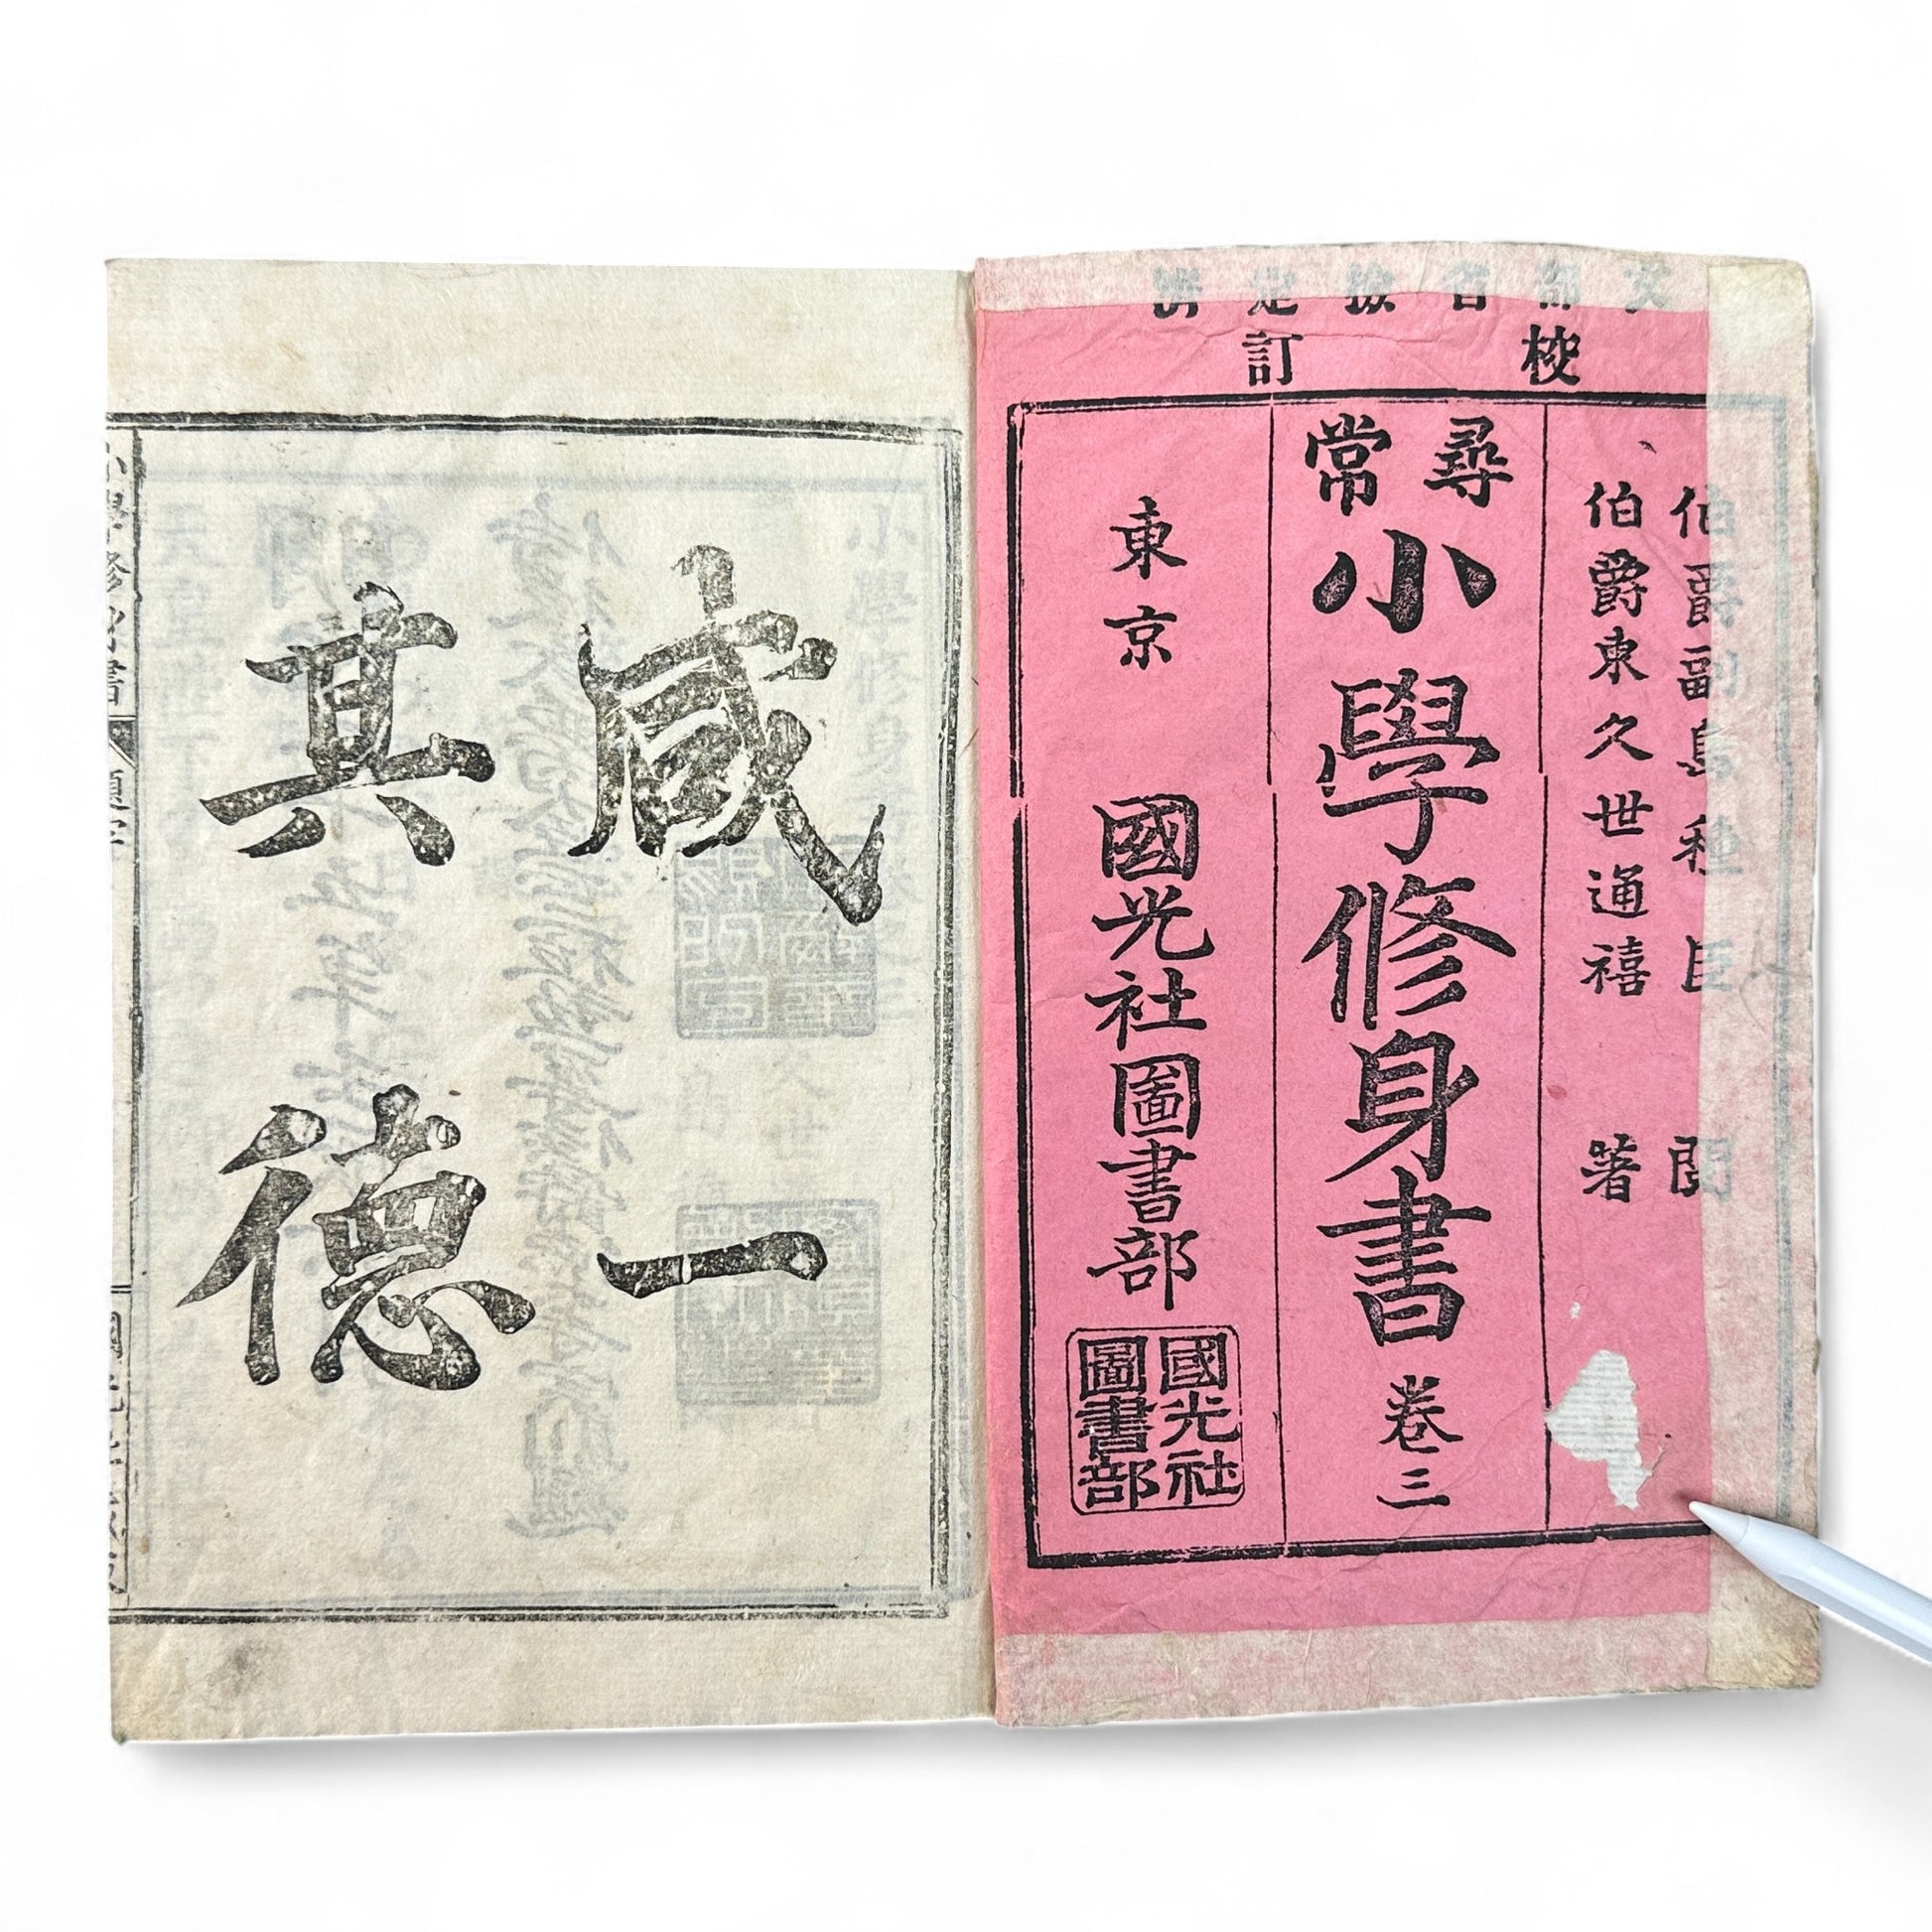 文部省檢定濟
校訂
伯爵副島種臣 閲
伯爵東久世通禧 著
尋常
小學修身書 卷三
東京 國光社圖書部
國光社
圖書部
咸一
其德
小學修身書 題字